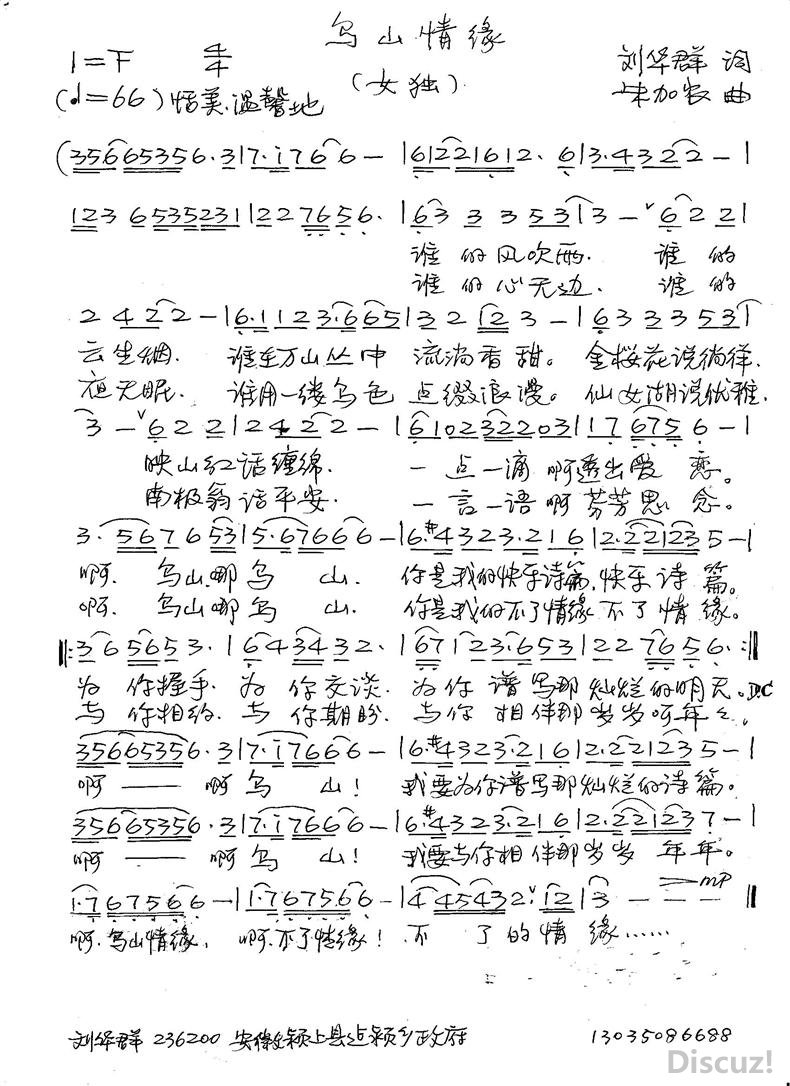 乌山情缘
1=F 4/4
(女独)
刘华群 词
加农 曲
(♩=66)恬美.温馨地
(35665356·3|7·i766—|61221612·6|3·4322—|
123 6535231|227656·|63 3 353|3—ˇ622|
谁的风吹雨. 谁的
谁的心无边. 谁的
2 422—|6·1123·665|32 123—|6333353|
云生烟. 谁在万山丛中 流淌香甜。金桜花说徜徉.
夜无眠. 谁用一缕乌色 点缀浪漫。仙女湖说优雅.
3—ˇ622|2422—|610232203|176756—|
映山红话缠绵. 一点一滴啊透出爱恋。
南极翁话平安. 一言一语啊芬芳思念。
3·567653|5·67666—|6·#4323·216|2·221235—|
啊. 乌山哪乌山. 你是我的快乐诗篇.快乐诗篇。
啊. 乌山哪乌山. 你是我的不了情缘不了情缘。
‖:365653·|643432·|67123·653|227656·:‖
为你握手. 为你交谈. 为你谱写那灿烂的明天。D.C
与你相约. 与你期盼. 与你相伴那岁岁啊年々。
356653 56·3|7·i7666—|6·#4323·216|2·221235—|
啊——啊乌山! 我要为你谱写那灿烂的诗篇。
356653 56·3|7·i7666—|6·#4323·216|2·221237—|
啊——啊乌山! 我要与你相伴那岁岁年年。
1·767566—|1·7675·66—|4 45432·ˇi2|3———‖
mp
啊.乌山情缘. 啊.不了情缘! 不了的情缘……
刘华群 236200 安徽颍上县 颍乡政府 13035086688
Discuz!